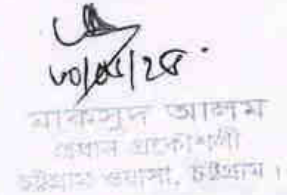 ৩০/০৪/২৪
মাকসুদ আলম
প্রধান প্রকৌশলী
চট্টগ্রাম ওয়াসা, চট্টগ্রাম।